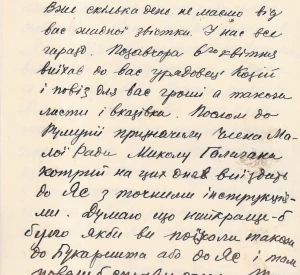 Вже скілька день не маємо від
вас жадної звістки. У нас все
гаразд. Позавчора 8го квітня
виїхав до вас урядовець Коцій
і повіз для вас гроші а також
листи і вказівки. Послом до
Румунії призначили Члена Ма-
лої Ради Миколу Галагана
котрий на цих днях виїздить
до Яс з точними інструкція-
ми. Думаю що найкраще-б
було якби ви поїхали також
до Букарешта або до Яс і там